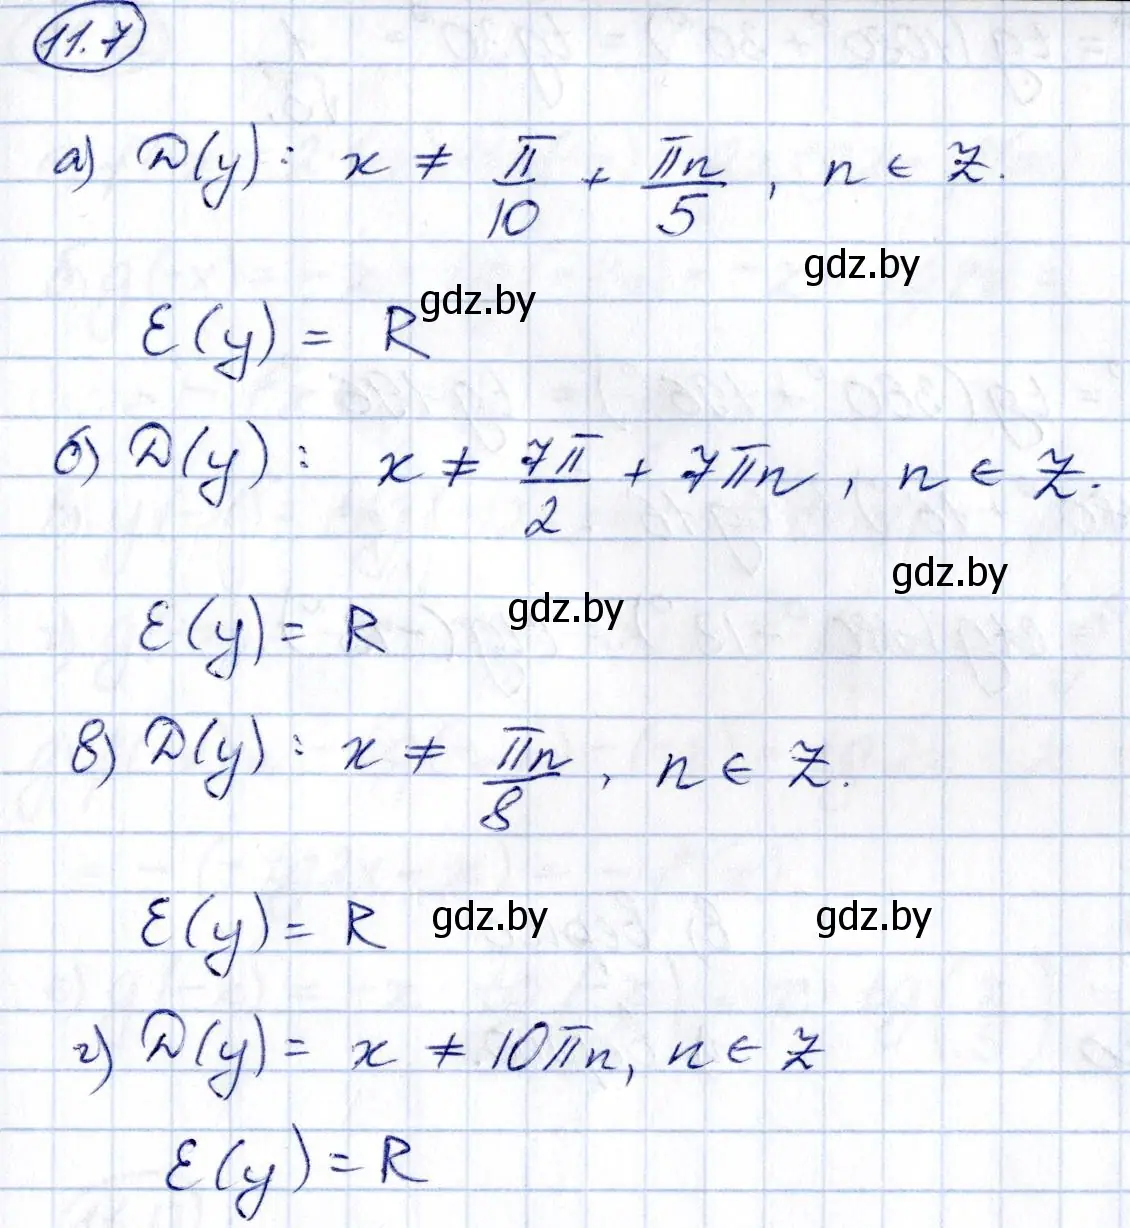 11.7
а) D(y): x ≠ π/10 + πn/5, n ∈ Z.
gdz.by
gdz.by
E(y) = R
б) D(y): x ≠ 7π/2 + 7πn, n ∈ Z.
gdz.by
gdz.by
E(y) = R
в) D(y): x ≠ πn/8, n ∈ Z.
E(y) = R
gdz.by gdz.by
г) D(y) = x ≠ 10πn, n ∈ Z
E(y) = R